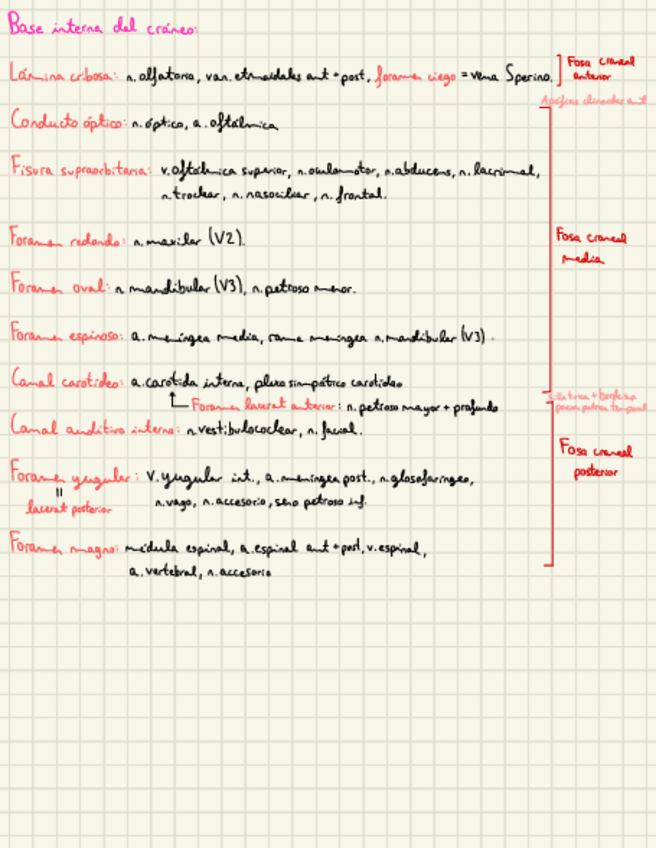 Base interna del cráneo:
Lámina cribosa: n. olfatorio, van. etmoidales ant + post, foramen ciego = vena Sperino.
Fosa craneal
anterior
Apófisis clinoides ant
Conducto óptico: n. óptico, a. oftálmica
Fisura supraorbitaria: v. oftálmica superior, n. oculomotor, n. abducens, n. lacrimal,
n. troclear, n. nasociliar, n. frontal.
Foramen redondo: n. maxilar (V2).
Fosa craneal
media
Foramen oval: n mandibular (V3), n. petroso menor.
Foramen espinoso: a. meníngea media, rama meníngea n. mandibular (V3).
Canal carotídeo: a. carotida interna, plexo simpático carotideo
silla turca + borde
petrosa temporal
Foramen lacerat anterior: n. petroso mayor + profundo
Canal auditivo interno: n. vestibulococlear, n. facial.
Fosa craneal
posterior
Foramen yugular: v. yugular int., a. meningea post., n. glosofaríngeo,
n. vago, n. accesorio, seno petroso inf.
= lacerat posterior
Foramen magno: médula espinal, a. espinal ant + post, v. espinal,
a. vertebral, n. accesorio